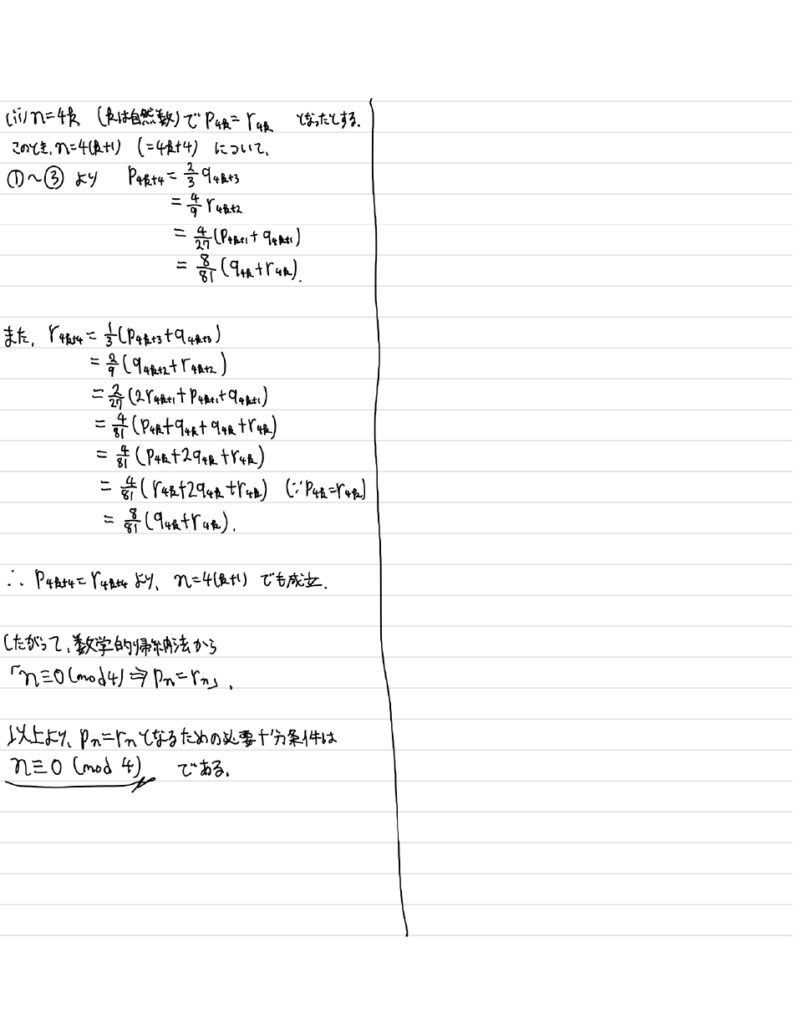 (ii) n=4k (kは自然数)で P₄ₖ = r₄ₖ となったとする.
このとき, n=4(k+1) (=4k+4) について、
①～③ より P₄ₖ₊₄ = 2/3 q₄ₖ₊₃
= 4/9 r₄ₖ₊₂
= 4/27 (P₄ₖ₊₁ + q₄ₖ₊₁)
= 8/81 (q₄ₖ + r₄ₖ).
また, r₄ₖ₊₄ = 1/3 (P₄ₖ₊₃ + q₄ₖ₊₃)
= 2/9 (q₄ₖ₊₂ + r₄ₖ₊₂)
= 2/27 (2r₄ₖ₊₁ + P₄ₖ₊₁ + q₄ₖ₊₁)
= 4/81 (P₄ₖ + q₄ₖ + q₄ₖ + r₄ₖ)
= 4/81 (P₄ₖ + 2q₄ₖ + r₄ₖ)
= 4/81 (r₄ₖ + 2q₄ₖ + r₄ₖ) (∵P₄ₖ = r₄ₖ)
= 8/81 (q₄ₖ + r₄ₖ).
∴ P₄ₖ₊₄ = r₄ₖ₊₄ より、 n=4(k+1) でも成立.
したがって、数学的帰納法から
「n≡0 (mod 4) ⇒ pₙ = rₙ」.
以上より、pₙ = rₙ となるための必要十分条件は
n≡0 (mod 4) である.